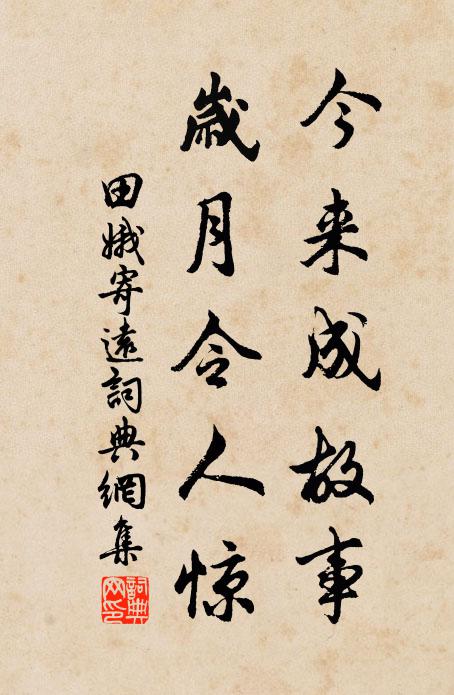 今来成故事
歲月令人惊
田娥寄遠詞典網集
詞典网印